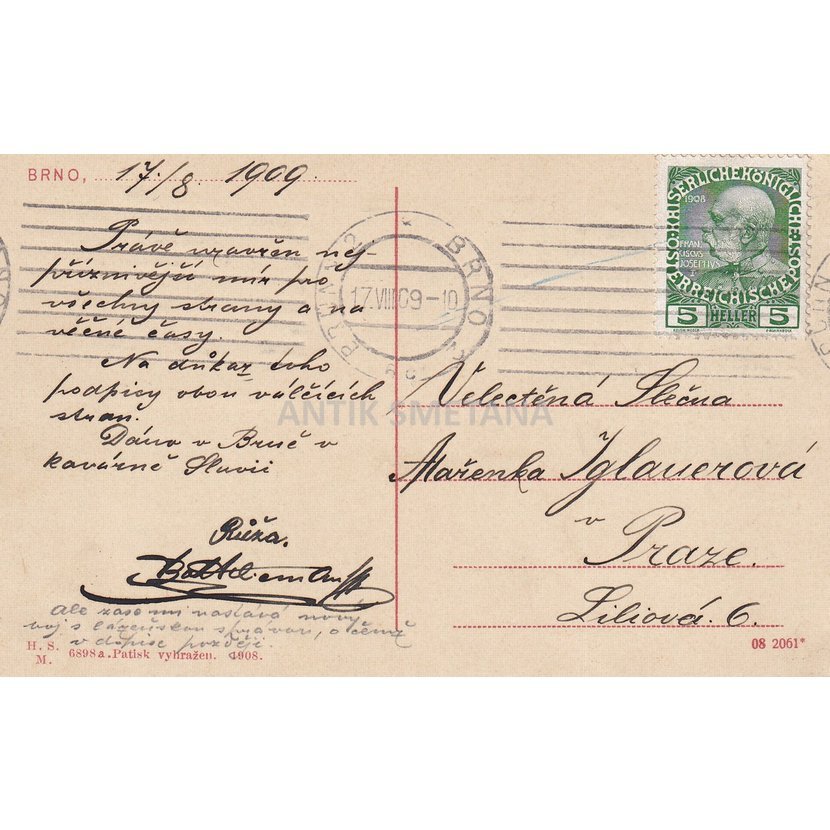 BRNO, 17./8. 1909.
Právě uzavřen nej-
příznivější mír pro
všechny strany a na
věčné časy.
Na důkaz toho
podpisy obou válčících
stran.
Dáno v Brně v
kavárně Slavii
Růža.
Ale zase mi nastává nový
boj s, o čemž
v dopise později.
H. S.
M.
6898a. Patisk vyhražen. 1908.
BRNO
17.VIII.09-10
1908
KAISERLICHE KÖNIGLICHE ÖSTERREICHISCHE POST
FRANCISCVS JOSEPHVS I
5 HELLER 5
Velectěná Slečna
Mařenka Iglauerová
v
Praze.
Liliová. 6.
08 2061*
ANTIK SMETANA